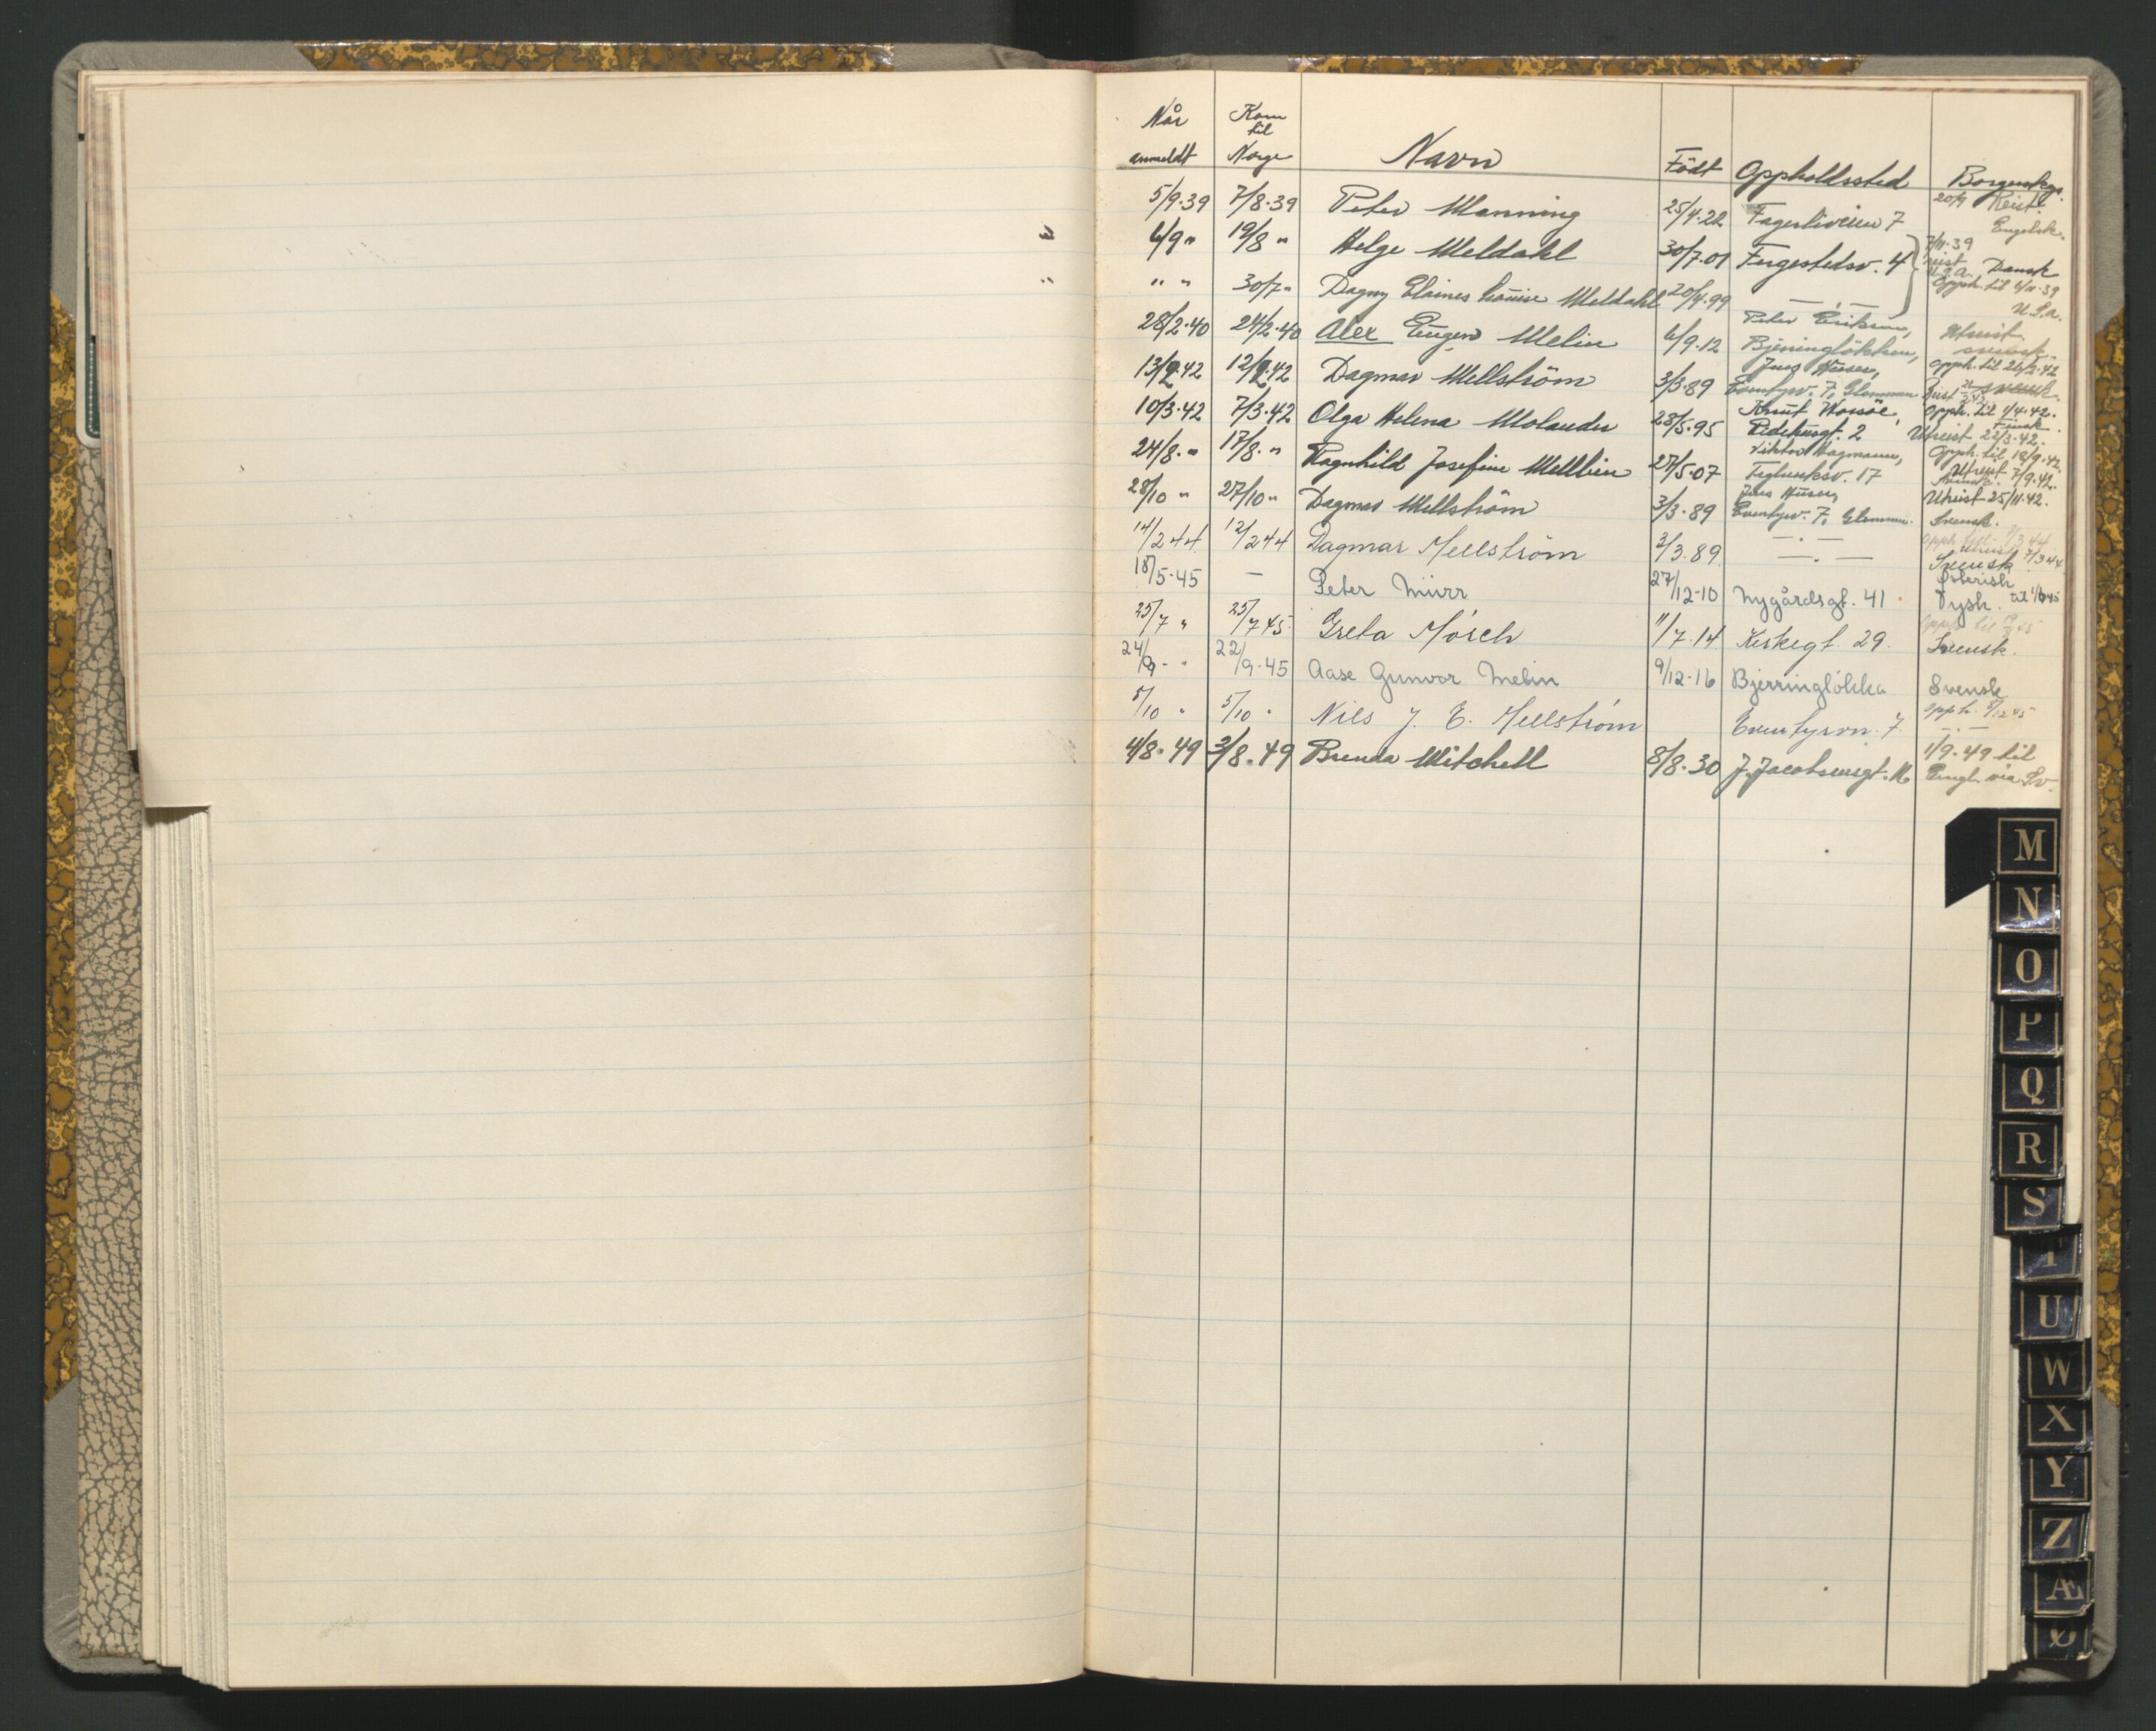 Når anmeldt Kom til Norge Navn Födt Oppholdssted Borgerskap.
5/9.39 7/8.39 Peter Manning 25/4.22 Fagerliveien 7 20/9 Reist. Engelsk.
6/9 " 19/8 " Helge Meldahl 30/7.01 Fergestedsv. 4 } 7/11.39 reist U.S.A. Dansk
" " 30/7 " Dagny Elaines Louise Meldahl 20/4.99 — " — Opph. til 6/11.39 U.S.A.
28/2.40 24/2.40 Alex Eugen Melin 6/9.12 Peter Eriksen, Bjerringlökken, Utreist svensk.
13/2.42 12/2.42 Dagmar Mellström 3/3.89 Jens Huser, Eventyrv. 7, Glemmen opph. til 26/2.42 Reist svensk.
10/3.42 7/3.42 Olga Helena Molander 28/5.95 Knut Korsöe, Ridehusgt. 2 opph. til 1/4.42. Finsk. Utreist 22/3.42.
24/8. " 17/8. " Ragnhild Josefine Mellbin 27/5.07 Viktor Hagmann, Teglverksv. 17 Opph. til 18/9.42. Utreist 7/9.42. Svensk.
28/10 " 27/10 " Dagmar Mellström 3/3.89 Jens Huser, Eventyrv. 7, Glemmen. Utreist 25/11.42. Svensk.
14/2 44 12/2 44 Dagmar Mellström 3/3.89 — " — Opph. till. 7/3 44 Utreist 7/3 44 Svensk
18/5.45 — Peter Mürr 27/12-10 Nygårdsgt. 41 Österisk Tysk. til 1/8 45
25/7 " 25/7 45 Greta Mörch 11/7.14 Kirkegt. 29. opph. til Svensk.
24/9 - " 22/9.45 Aase Gunvor Melin 9/12-16 Bjerringlökka Svensk
5/10 " 5/10 " Nils J. E. Mellström Eventyrvn. 7 opph. 5/12 45 — " —
4/8.49 3/8.49 Brenda Mitchell 8/8.30 J. Jacobsensgt. 16 1/9.49 til Engl. via Sv.
M
N
O
P
Q
R
S
T
U
W
X
Y
Z
Æ
Ø